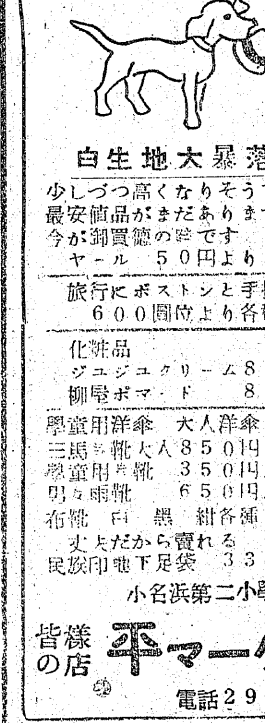 白生地大暴落
少しづつ高くなりそう
最安値品がまだあります
今が御買徳の時です
ヤール 50円より
旅行にボストンと手
600圓位より各
化粧品
ジユジユクリーム8
柳屋ポマード 8
學童用洋傘 大人洋傘
三馬 靴大人850円
學童用 靴 350円
男 雨靴 650円
布靴 白 黒 紺各種
丈夫だから賣れる
民族印地下足袋 33
小名浜第二小學
皆様の店
平マー
電話29